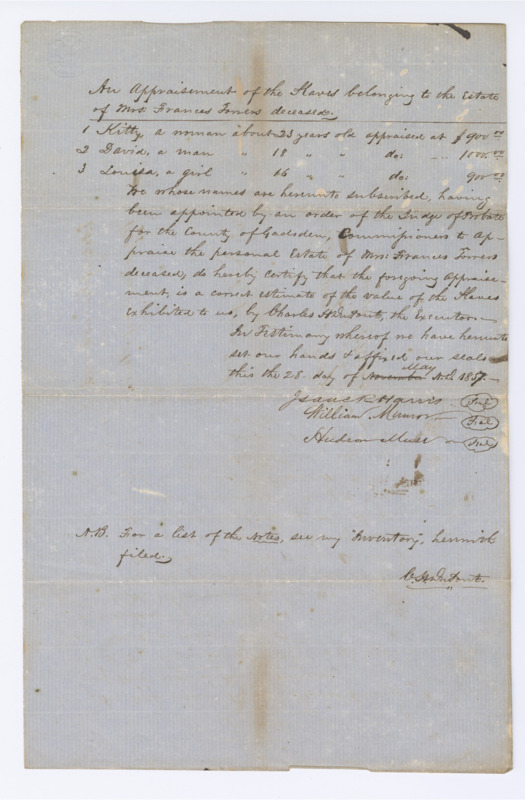 An Appraisement of the Slaves belonging to the Estate
of Mrs. Frances Forers deceased.
1 Kitty, a woman about 23 years old appraised at $900.00
2 David, a man " 18 " " do: ... 1000.00
3 Louisa, a girl " 16 " " do: 900.00
We whose names are hereunto subscribed, having
been appointed by an order of the Judge of Probate
for the County of Gadsden, Commissioners to Ap-
praise the personal Estate of Mrs: Frances Forers
deceased, do hereby certify that the foregoing Appraise-
ment, is a correct estimate of the value of the Slaves
exhibited to us, by Charles H. DuPont, the Executor.
In Testimony whereof we have hereunto
set our hands & affixed our seals
May
this the 28. day of November A.D. 1857.
Isaac R Harris Seal
William Munroe Seal
Hudson Muse Seal
N.B. For a list of the Notes, see my "Inventory", herewith
filed.
C. H. DuPont.